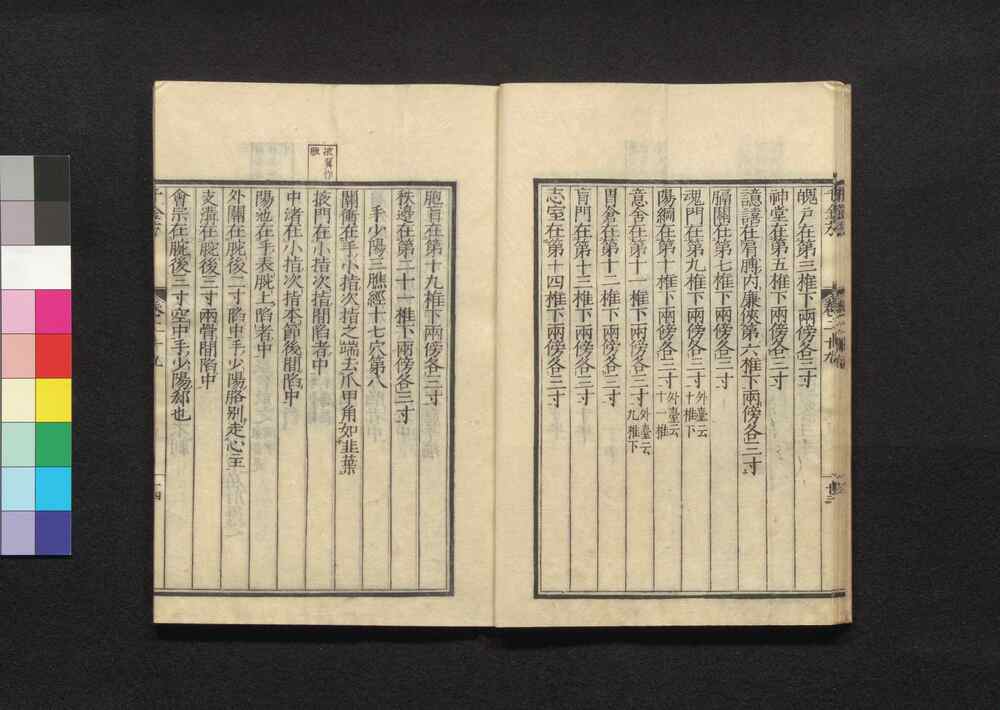 魄戶在第三椎下兩傍各三寸
神堂在第五椎下兩傍各三寸
譩譆在肩膊內廉俠第六椎下兩傍各三寸
膈關在第七椎下兩傍各三寸
魂門在第九椎下兩傍各三寸外臺云十椎下
陽綱在第十椎下兩傍各三寸外臺云十一椎
意舍在第十一椎下兩傍各三寸外臺云九椎下
胃倉在第十二椎下兩傍各三寸
肓門在第十三椎下兩傍各三寸
志室在第十四椎下兩傍各三寸
胞肓在第十九椎下兩傍各三寸
秩邊在第二十一椎下兩傍各三寸
手少陽三膲經十七穴第八
關衝在手小指次指之端去爪甲角如韭葉
掖門在小指次指間陷者中
中渚在小指次指本節後間陷中
陽池在手表腕上陷者中
外關在腕後二寸陷中手少陽胳別走心主
支溝在腕後三寸兩骨間陷中
會宗在腕後三寸空中手少陽郄也